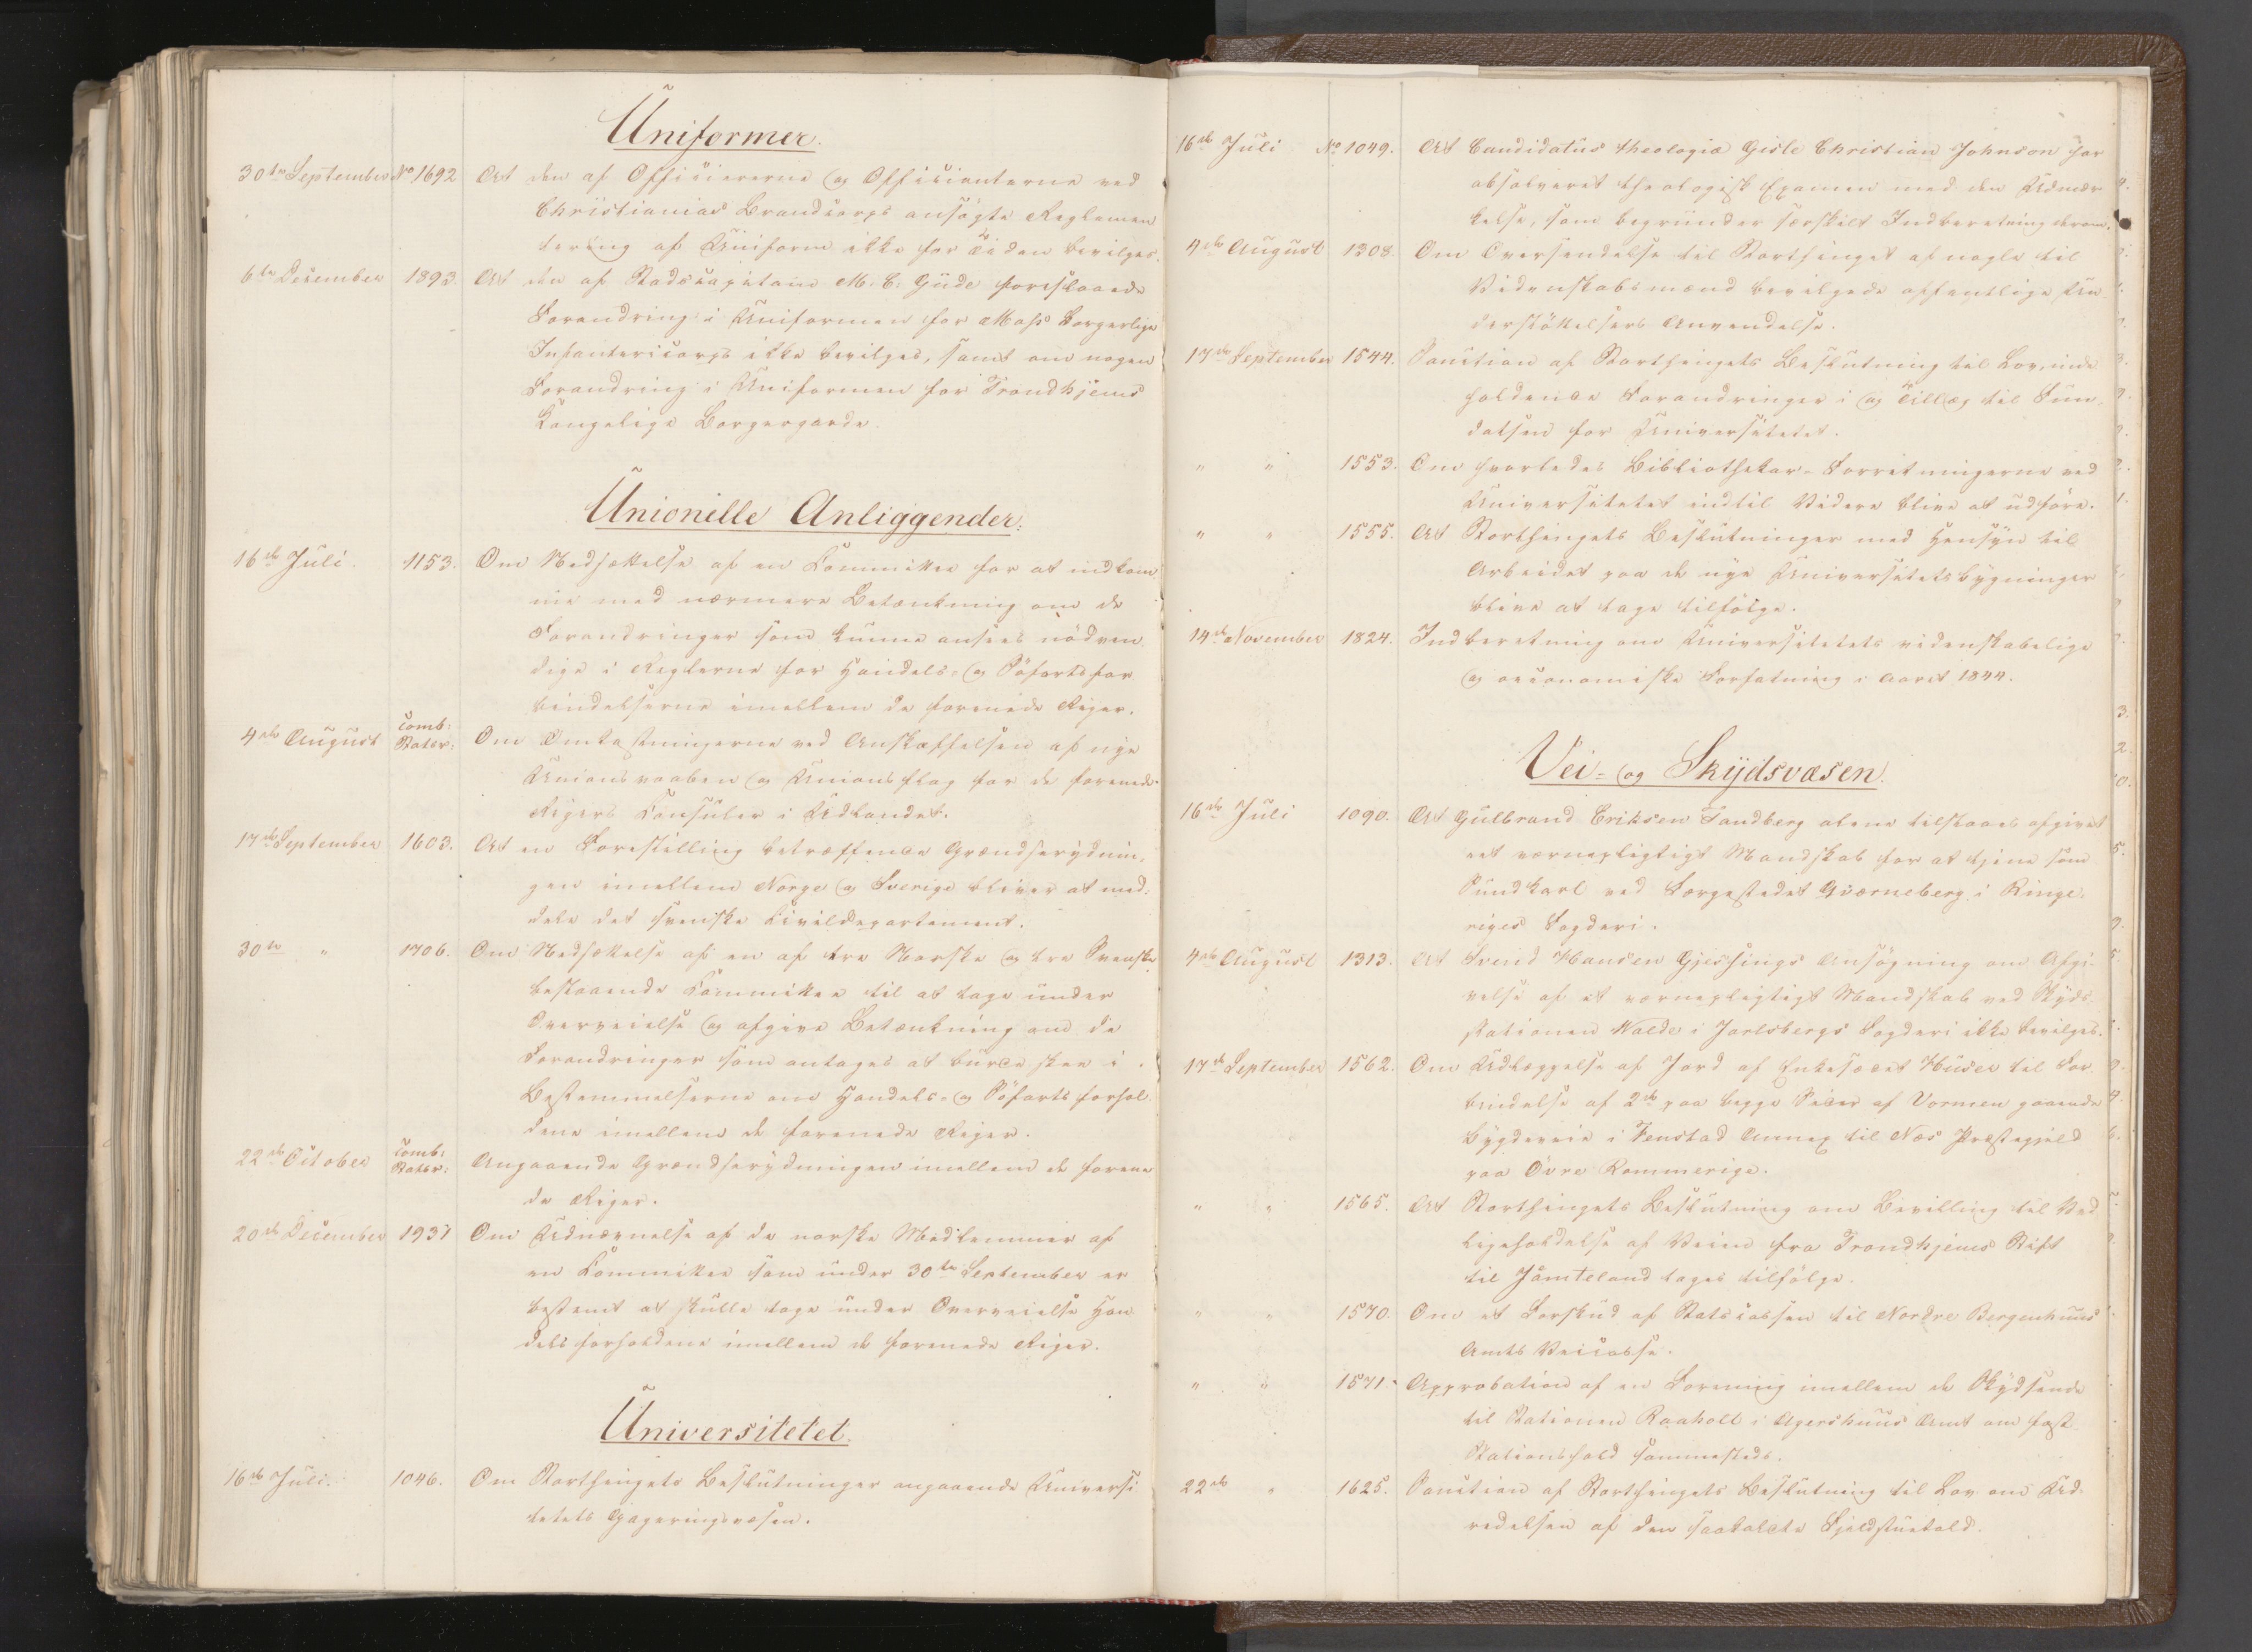 Uniformer.
30te September No 1692 At den af Officiererne og Officianterne ved
Christianias Brandcorps ansøgte Reglemen
tering af Uniform ikke for Tiden bevilges.
6te December 1893. At den af Stadscapitain M. C. Gude foreslaaede
Forandring i Uniformen for Moss borgerlige
Infantericorps ikke bevilges, samt om nogen
Forandring i Uniformen for Trondhjems
Kongelige Borgergarde.
Unionelle Anliggender.
16de Juli. 1153. Om Nedsættelse af en Committee for at indkom
me med nærmere Betænkning om de
Forandringer som kunne ansees nødven
dige i Reglerne for Handels- og Söfartsfor
bindelserne imellem de forenede Riger.
4de August Comb: Stater: Om Omkostningerne ved Anskaffelsen af nye
Unionsvaaben og Unionsflag for de forenede
Rigers Consuler i Udlandet.
17de September 1603. At en Forestilling betræffende Grændserydnin,
gen imellem Norge og Sverige bliver at med:
dele det svenske Civildepartement.
30te " 1706. Om Nedsættelse af en af tre Norske og tre Svenske
bestaaende Committee til at tage under
Overveielse og afgive Betænkning om de
Forandringer som antages at burde skee i
Bestemmelserne om Handels- og Söfartsforhol
dene imellem de forenede Riger.
22de October Comb: Stater: Angaaende Grændserydningen imellem de forene
de Riger.
20de December 1937 Om Udnævnelse af de norske Medlemmer af
en Committee som under 30te September er
bestemt at skulle tage under Overveielse Han
delsforholdene imellem de forenede Riger.
Universitetet.
16de Juli. 1046. Om Storthingets Beslutninger angaaende Universi
tetets Gageringsvæsen.
16de Juli No 1049. At Candidatus theologiæ Gisle Christian Johnson har
absolveret theologisk Examen med den Udmær
kelse, som begrunder særskilt Indberetning derom.
4de August 1308. Om Oversendelse til Storthinget af nogle til
Videnskabsmænd bevilgede offentlige Un
derstøttelsers Anvendelse.
17de September 1544. Sanction af Storthingets Beslutning til Lov, inde
holdende Forandringer i og Tillæg til Fun,
datsen for Universitetet.
" " 1553. Om hvorledes Bibliothekar-Forretningerne ved
Universitetet indtil Videre blive at udføre.
" " 1555. At Storthingets Beslutninger med Hensyn til
Arbeidet paa de nye Universitetsbygninger
blive at tage tilfølge.
14de November 1824. Indberetning om Universitetets videnskabelige
og oeconomiske Forfatning i Aaret 1844.
Vei- og Skydsvæsen.
16de Juli 1090. At Gulbrand Eriksen Sandberg alene tilstaaes afgivet
eet værnepligtigt Mandskab for at tjene som
Sundkarl ved Færgestedet Gværneberg i Ringe,
riges Fogderi.
4de August 1313. At Svend Hansen Gjessings Ansøgning om Afgi-
velse af et værnepligtigt Mandskab ved Skyds
stationen Nalde i Jarlsbergs Fogderi ikke bevilges.
17de September 1562. Om Udlæggelse af Jord af Enkesædet Huser til For
bindelse af 2de paa begge Sider af Vormen gaaende
Bygdeveie i Fenstad Annex til Næs Præstegjeld
paa Övre Rommerige.
" " 1565. At Storthingets Beslutning om Bevilling til Ved
ligeholdelse af Veien fra Trondhjems Stift
til Jämteland tages tilfølge.
" " 1570. Om et Forskud af Statscassen til Nordre Bergenhuus
Amts Veicasse.
" " 1571. Approbation af en Forening imellem de Skydsende
til Stationen Raaholt i Agershuus Amt om fast
Stationshold sammesteds.
22de " 1625. Sanction af Storthingets Beslutning til Lov om Ud,
redelsen af den saakaldte Fjeldstuetold.